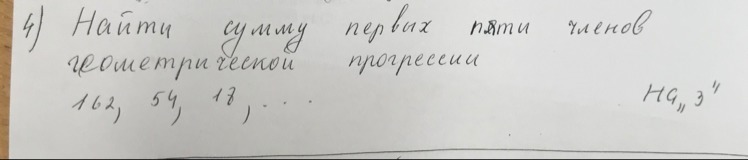 4) Найти сумму первых пяти членов
геометрической прогрессии
162, 54, 18, ... на „3"